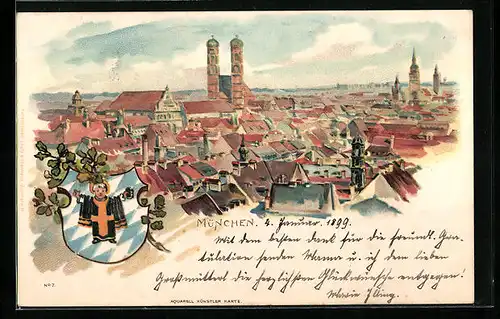 MÜNCHEN. 4. Januar. 1899.
Mit dem besten Dank für die freundl. Gra-
tulation senden Mama u. ich dem lieben
Großmutterl die herzlichsten Glückwünsche entgegen!
Marie Illing.
No 7.
AQUARELL KÜNSTLER KARTE